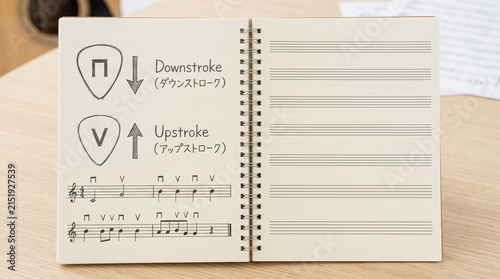 Downstroke
(ダウンストローク)
V
Upstroke
(アップストローク)